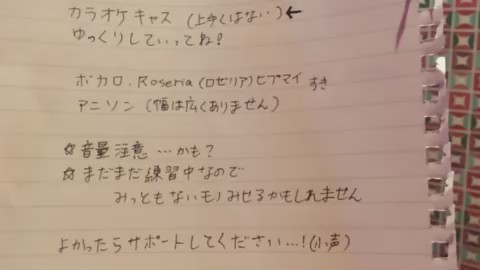 カラオケキャス(上手くはない)←
ゆっくりしていってね!
ボカロ、Roseria(ロゼリア)ヒプマイ すき
アニソン(幅は広くありません)
☆音量注意…かも?
☆まだまだ練習中なので
みっともないモノみせるかもしれません
よかったらサポートしてください…!(小声)